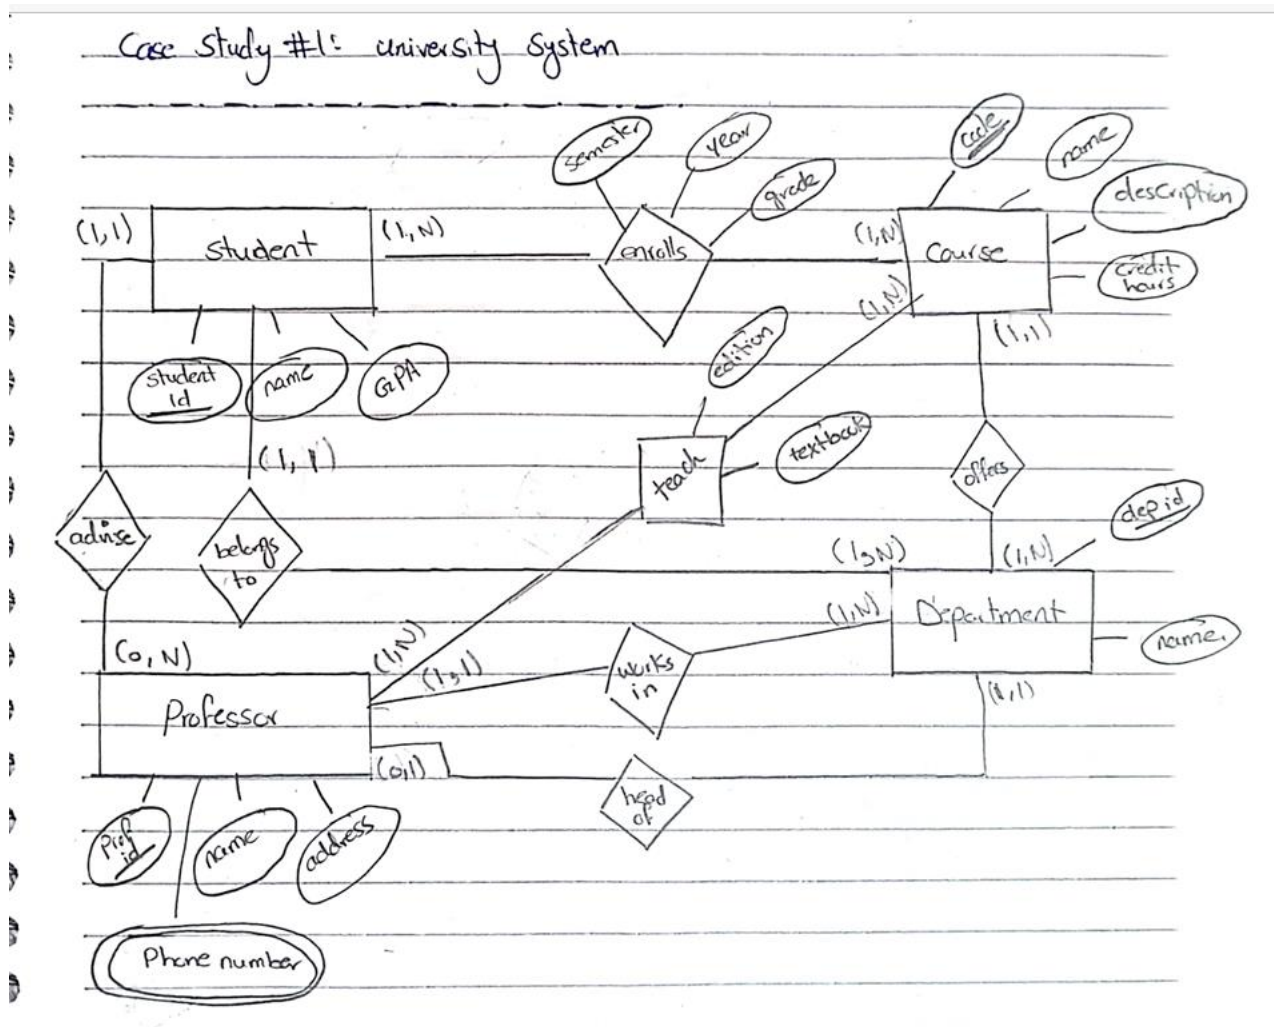 Case Study #1: university System
semester
year
grade
code
name
description
credit
hours
(1,1)
Student
(1,N)
enrolls
(1,N)
Course
(1,N)
(1,1)
student
id
name
GPA
edition
textbook
teach
(1,1)
offers
dep id
advise
belongs
to
(1,N)
(1,N)
Department
name.
(1,N)
(0,N)
(1,N)
(1,1)
works
in
(1,1)
Professor
(0,1)
head
of
Prof
id
name
address
Phone number